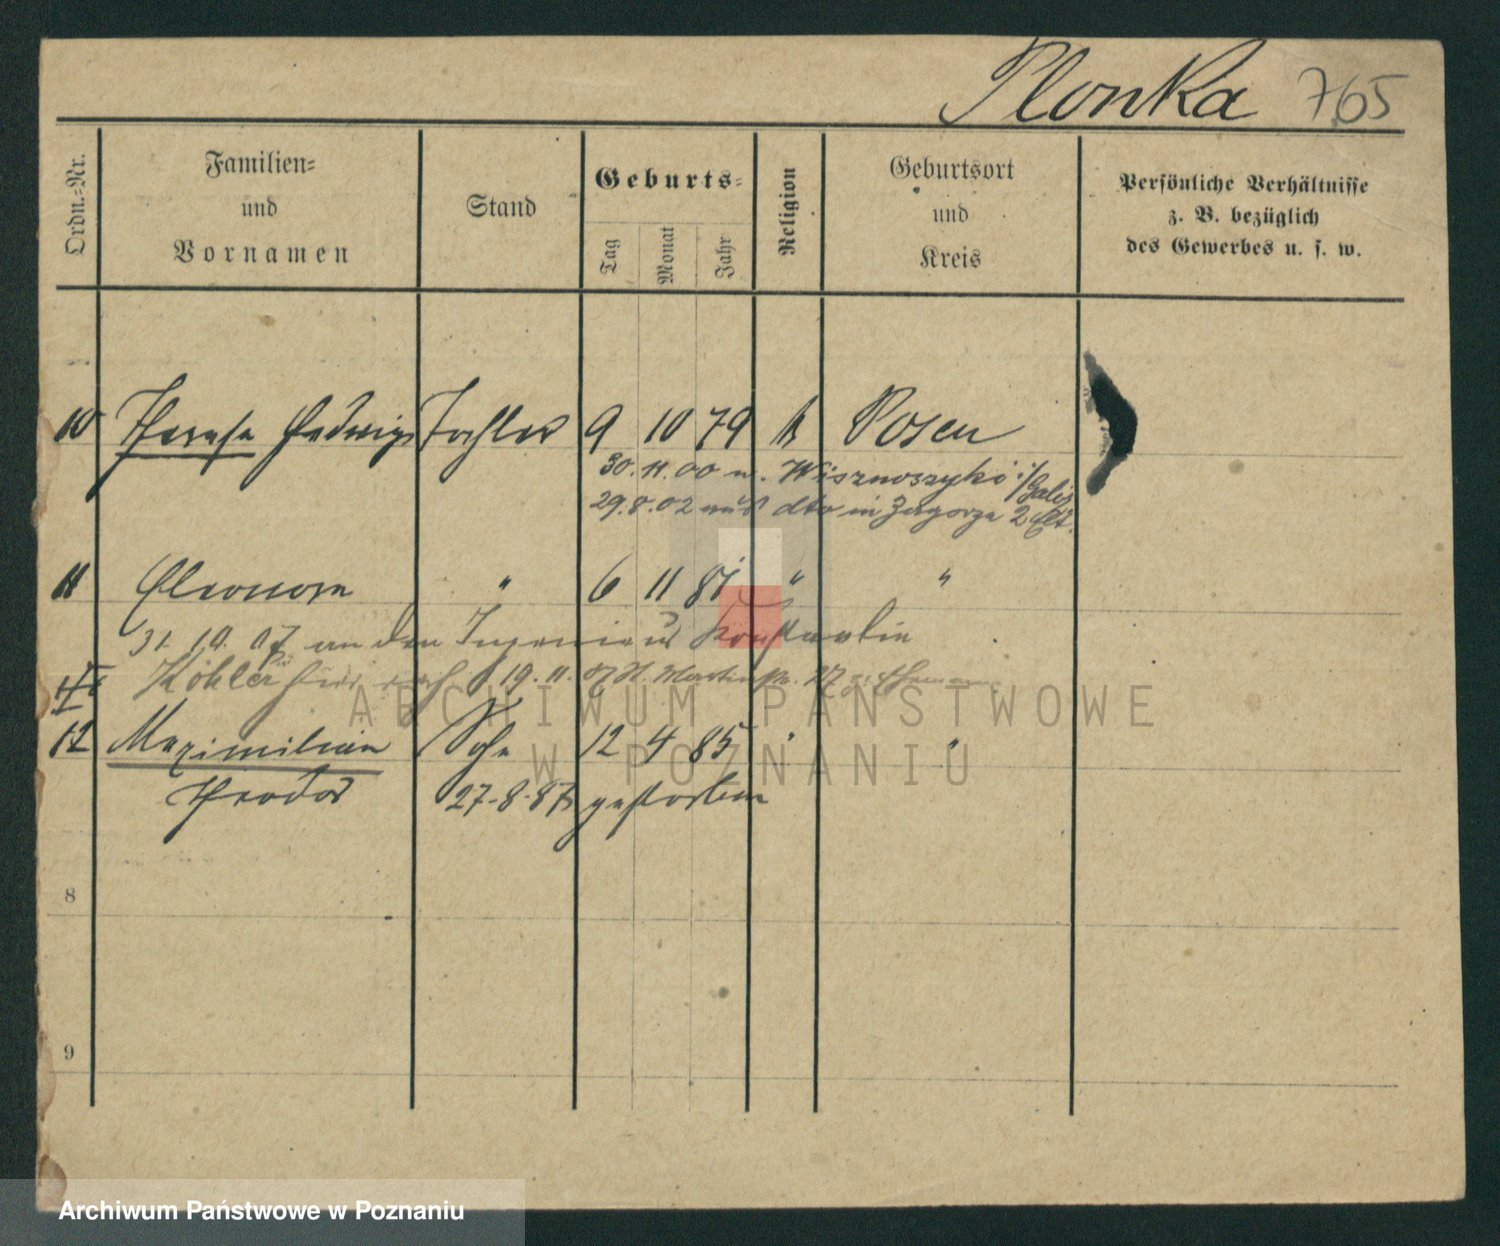 Plonka 765
Ordn.=Nr.
Familien=
und
Vornamen
Stand
Geburts=
Tag
Monat
Jahr
Religion
Geburtsort
und
Kreis
Persönliche Verhältnisse
z. B. bezüglich
des Gewerbes u. s. w.
10 Therese Hedwig Tochter 9 10 79 k Posen
30. 11. 00 n. i/Galiz
29. 8. 02 aus dto in Zagorze
11 Eleonora " 6 11 81 " "
31. 10. 07 an den Ingenieur Konstantin
Köhler 19. 11. 07 St. Martinstr. 27
12 Maximilian Sohn 12 4 85 " "
Theodor 27-8-87 gestorben
8
9
ARCHIWUM PAŃSTWOWE
W POZNANIU
Archiwum Państwowe w Poznaniu